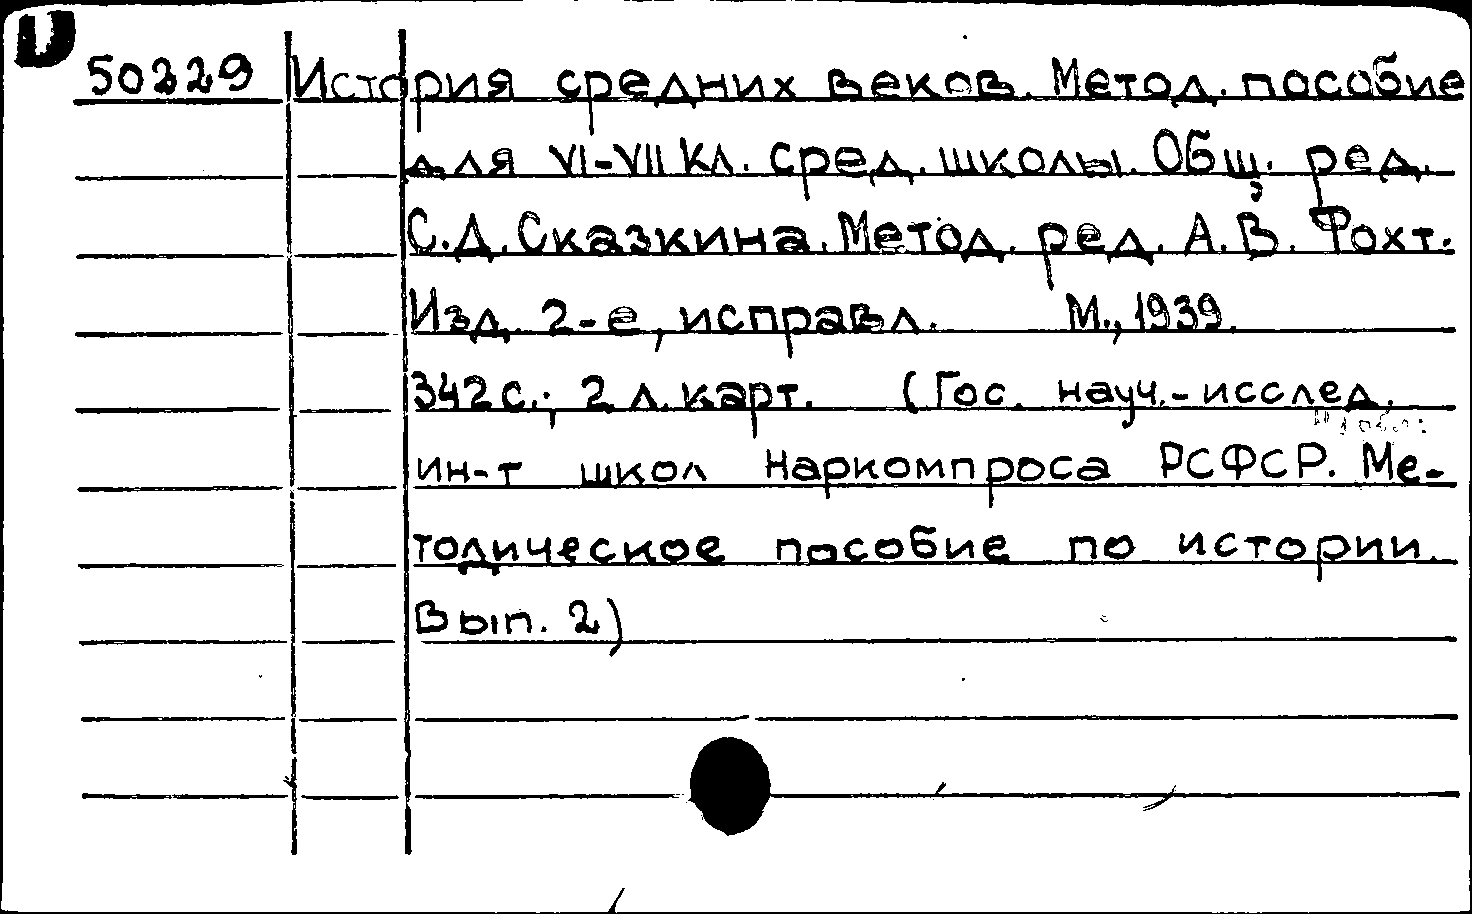 50229 История средних веков. Метод. пособие
для VI-VII кл. сред. школы. Общ. ред.
С.Д. Сказкина. Метод. ред. А.В. Фохт.
Изд. 2-е, исправл. М., 1939.
342 с.; 2 л. карт. (Гос. науч.-исслед.
ин-т школ Наркомпроса РСФСР. Ме-
тодическое пособие по истории.
Вып. 2)